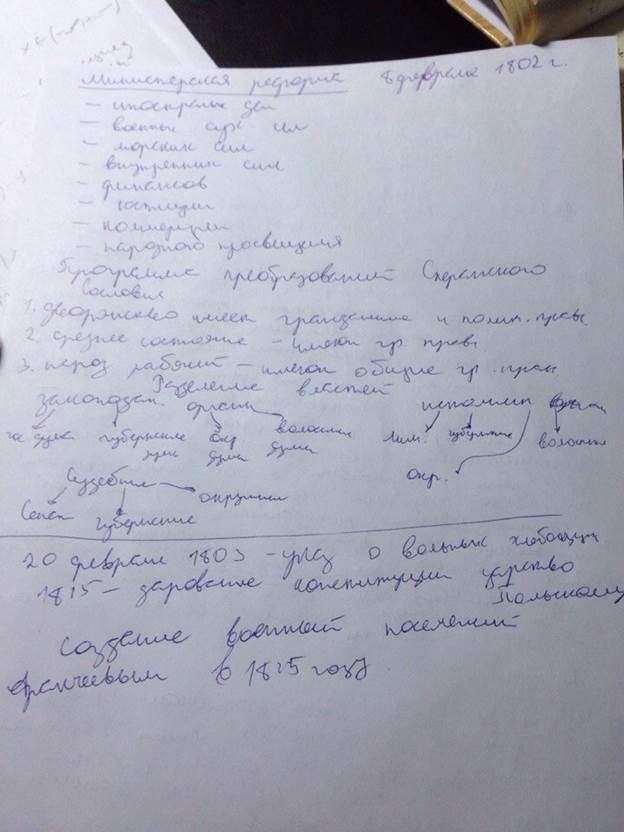 Министерская реформа 8 февраля 1802 г.
– иностраных дел
– военных сух сил
– морских сил
– внутренних сил
– финансов
– юстиции
– полиции
– народного просвещения
Программа преобразований Сперанского
Сословия
1. дворянство имеет гражданские и полит. права
2. среднее состояние – имеют гр права
3. народ рабочий – имеют общие гр. права
Разделение властей
законодат. органы исполнит
гос дума губернские окр волостные мин. губернские волостные
думы думы думы
окр.
Судебные
Сенат губернские окружные
20 февраля 1803 – указ о вольных хлебопашцах
1815 – дарование конституции царство Польскому
Создание военных поселений
Аракчеевым в 1815 году.